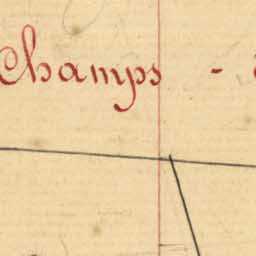 Champs -